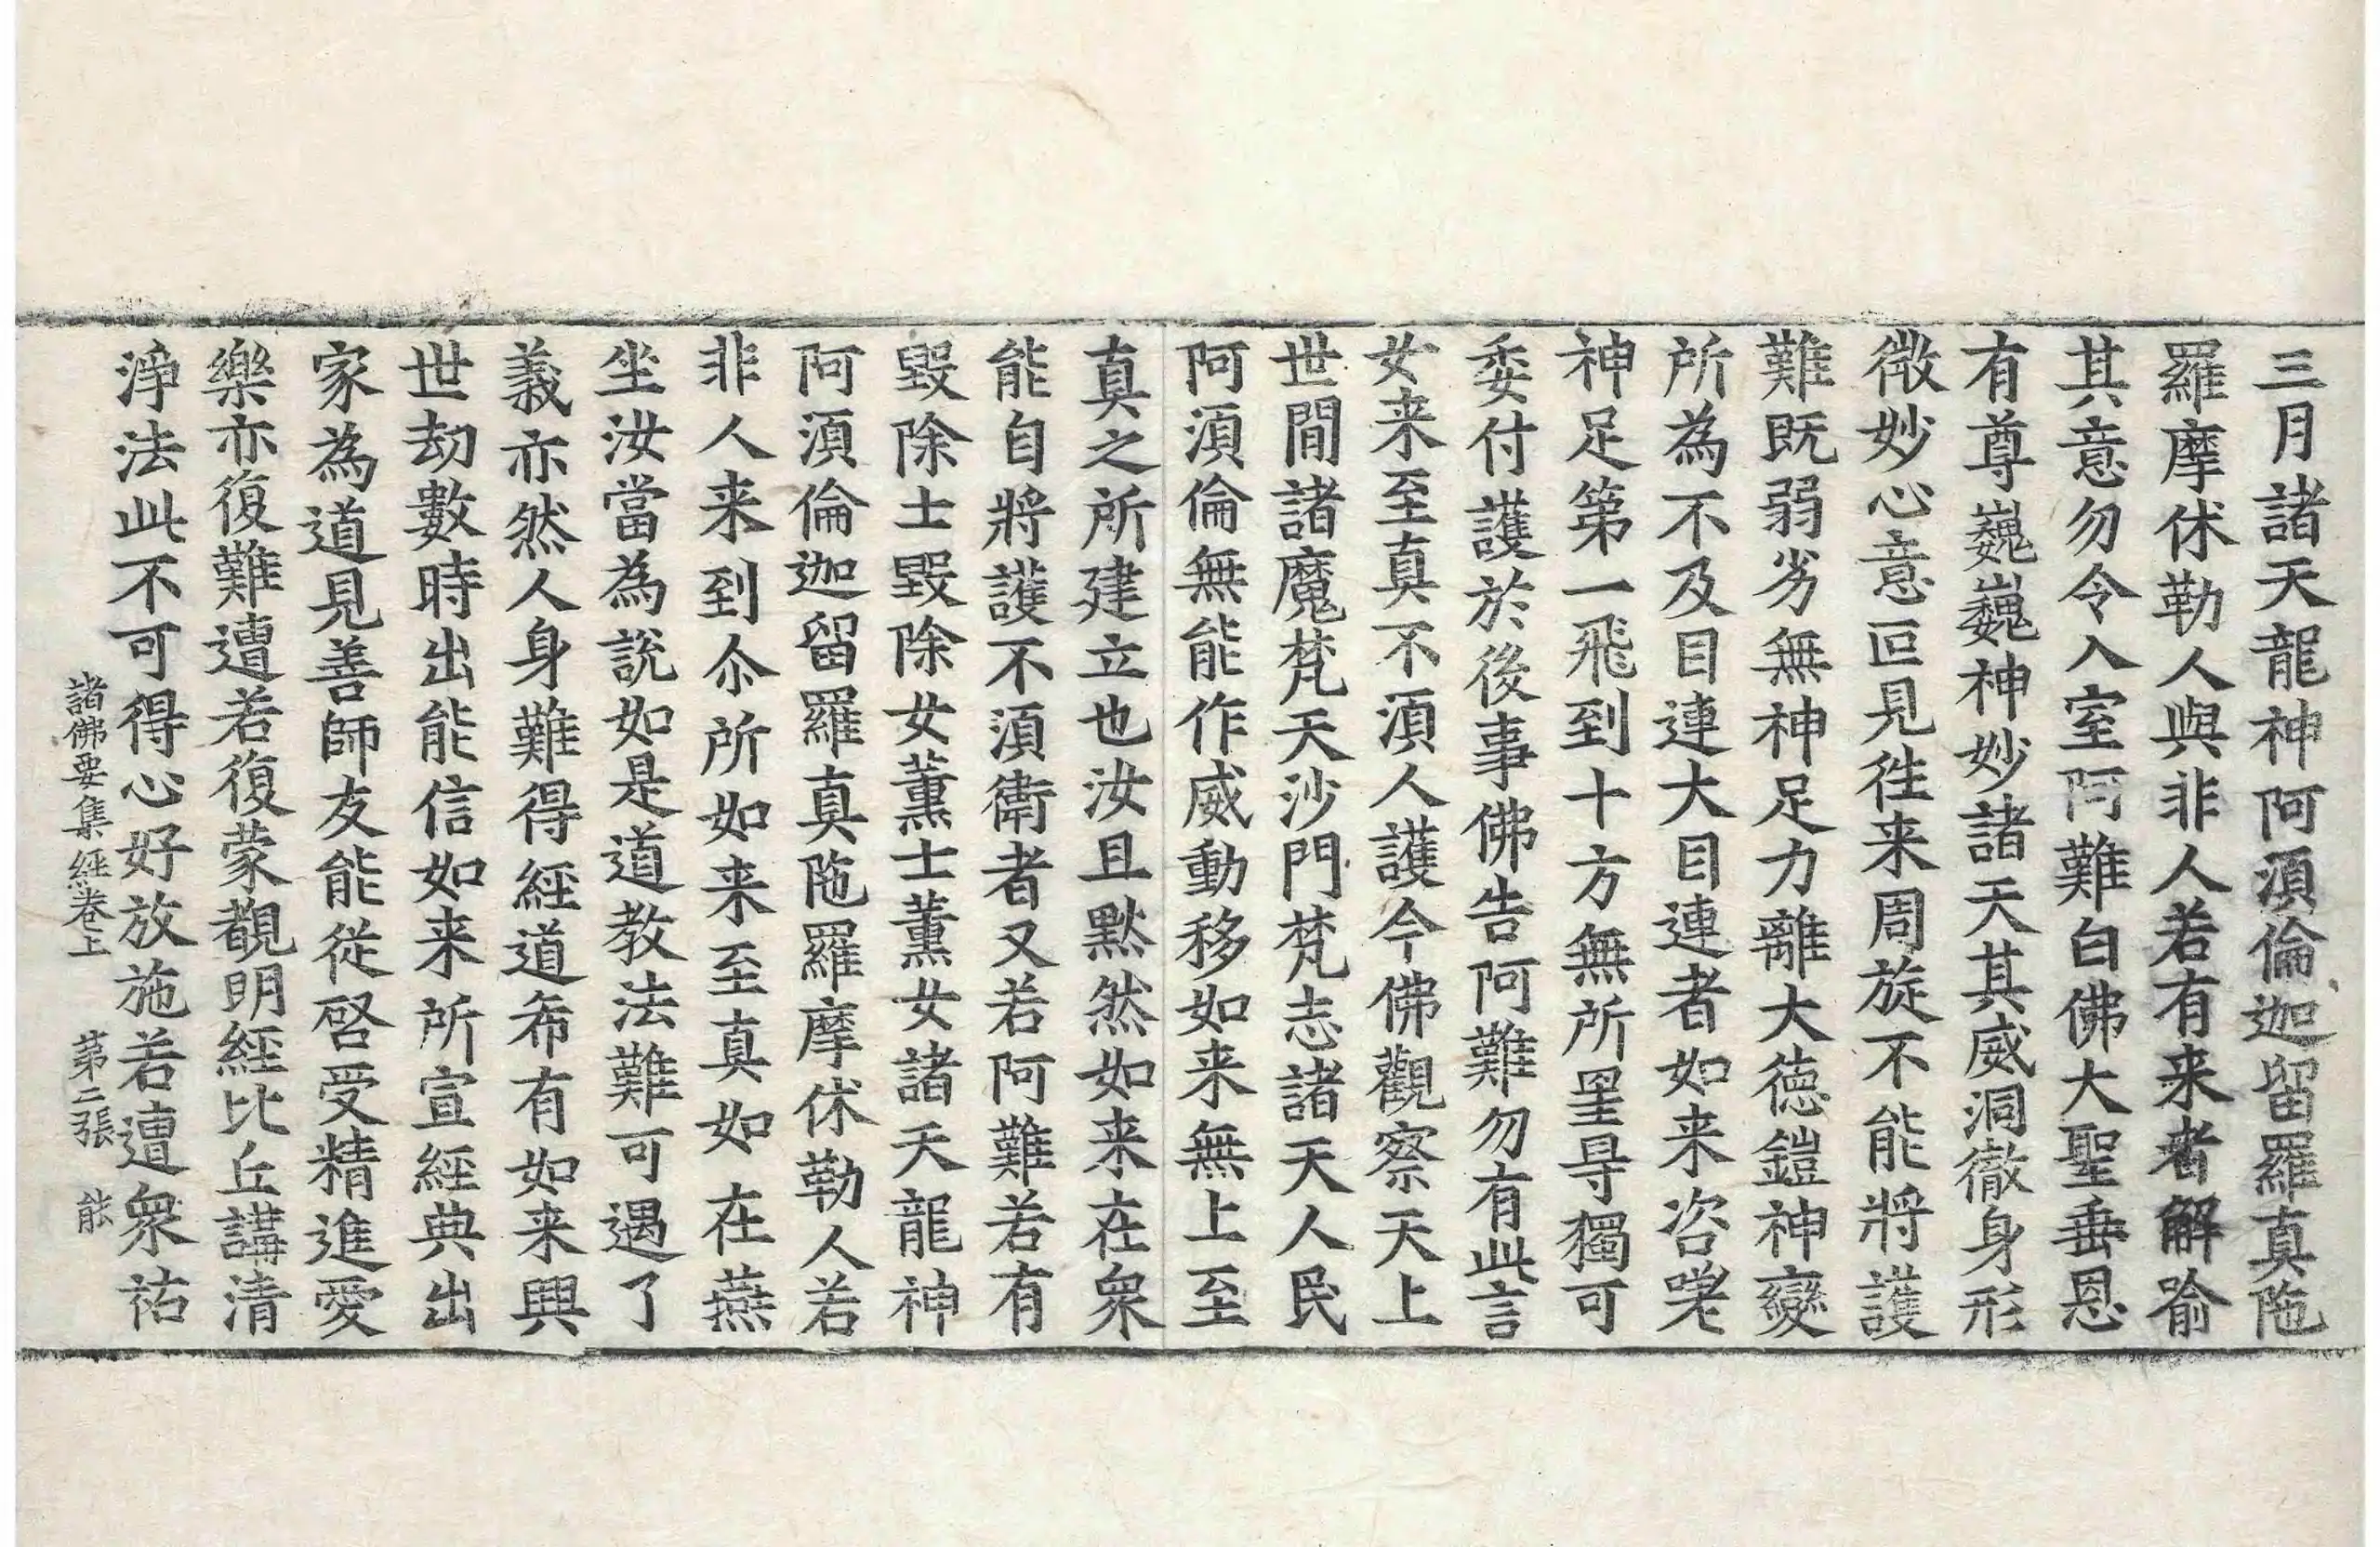 三月諸天龍神阿湏倫迦留羅真陁
羅摩休勒人與非人若有来者解喻
其意勿令入室阿難白佛大聖垂恩
有尊巍巍神妙諸天其威洞徹身形
微妙心意叵見徃来周旋不能將護
難既弱劣無神足力離大德鎧神變
所為不及目連大目連者如来咨嗟
神足第一飛到十方無所罣㝵獨可
委付護於後事佛告阿難勿有此言
女来至真不湏人護今佛觀察天上
世間諸魔梵天沙門梵志諸天人民
阿湏倫無能作威動移如来無上至
真之所建立也汝且默然如来在衆
能自將護不湏衛者又若阿難若有
毀除士毀除女薰士薰女諸天龍神
阿湏倫迦留羅真陁羅摩休勒人若
非人来到尒所如来至真如在燕
坐汝當為說如是道教法難可遇了
義亦然人身難得經道希有如来興
世劫數時出能信如来所宣經典出
家為道見善師友能從啓受精進愛
樂亦復難遭若復蒙覩明經比丘講清
淨法此不可得心好放施若遭衆祐
諸佛要集經卷上 第二張 能